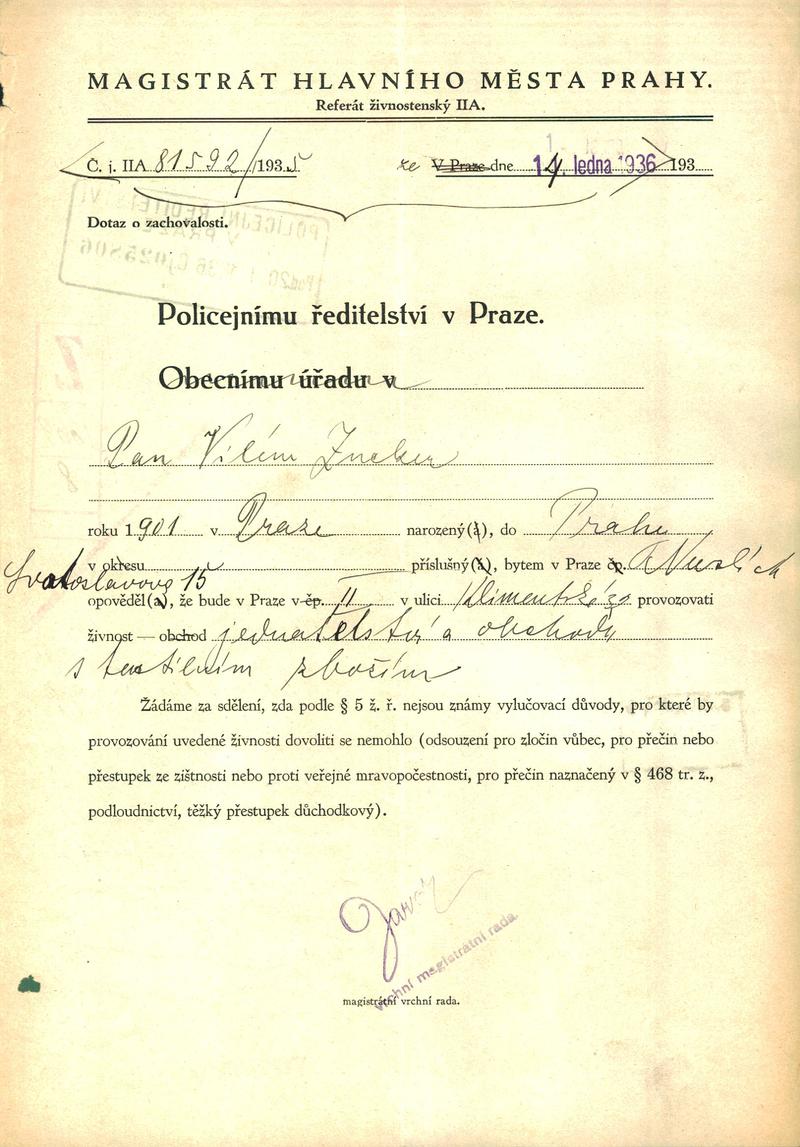 MAGISTRÁT HLAVNÍHO MĚSTA PRAHY.
Referát živnostenský IIA.
Č. j. IIA 81592/1935 ze V Praze dne 14. ledna 1936 193
Dotaz o zachovalosti.
Policejnímu ředitelství v Praze.
Obecnímu úřadu v
Pan Vilém Zucker
roku 1901 v Praze narozený(á), do Prahy
v okresu příslušný(á), bytem v Praze čp. Nuslích
Svatoslavova 15
opověděl(a), že bude v Praze v čp. II v ulici Klimentská provozovati
živnost — obchod jednatelství a obchody
s textilním zbožím
Žádáme za sdělení, zda podle § 5 ž. ř. nejsou známy vylučovací důvody, pro které by
provozování uvedené živnosti dovoliti se nemohlo (odsouzení pro zločin vůbec, pro přečin nebo
přestupek ze zištnosti nebo proti veřejné mravopočestnosti, pro přečin naznačený v § 468 tr. z.,
podloudnictví, těžký přestupek důchodkový).
vrchní magistrátní rada.
magistrátní vrchní rada.